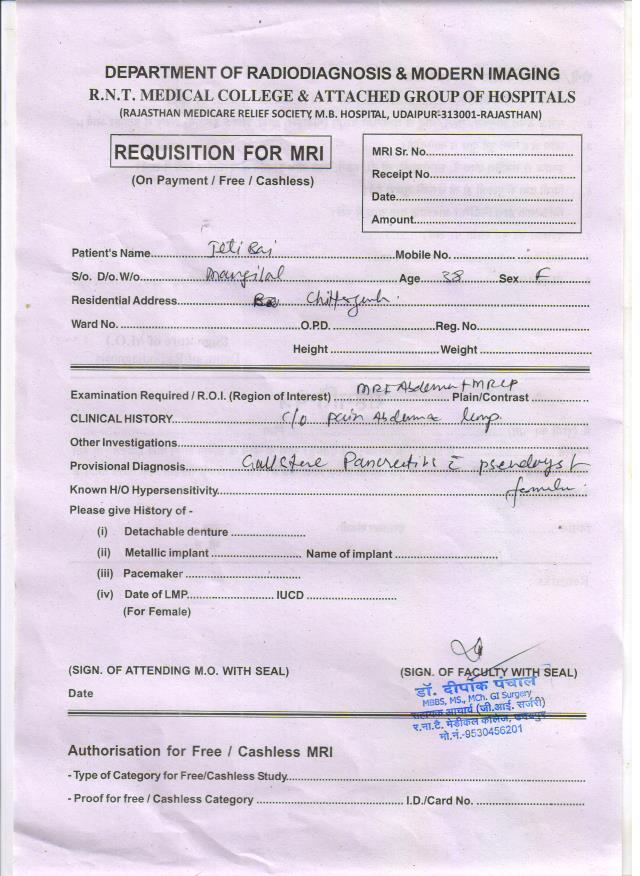 DEPARTMENT OF RADIODIAGNOSIS & MODERN IMAGING
R.N.T. MEDICAL COLLEGE & ATTACHED GROUP OF HOSPITALS
(RAJASTHAN MEDICARE RELIEF SOCIETY, M.B. HOSPITAL, UDAIPUR-313001-RAJASTHAN)
REQUISITION FOR MRI
(On Payment / Free / Cashless)
MRI Sr. No.
Receipt No.
Date
Amount
Patient's Name Mobile No.
S/o. D/o. W/o Mangilal Age 38 Sex F
Residential Address
Ward No. O.P.D. Reg. No.
Height Weight
Examination Required / R.O.I. (Region of Interest) MRI Abdomen + MRCP Plain/Contrast
CLINICAL HISTORY C/o pain Abdomen
Other Investigations
Provisional Diagnosis Gallstone Pancreatitis c pseudocyst
Known H/O Hypersensitivity
Please give History of -
(i) Detachable denture
(ii) Metallic implant Name of implant
(iii) Pacemaker
(iv) Date of LMP IUCD
(For Female)
(SIGN. OF ATTENDING M.O. WITH SEAL) (SIGN. OF FACULTY WITH SEAL)
Date
डॉ. दीपक पंचाल
MBBS, MS., MCh. GI Surgery
सहायक आचार्य (जी.आई. सर्जरी)
र.ना.टै. मेडीकल कॉलेज, उदयपुर
मो.नं.-9530456201
Authorisation for Free / Cashless MRI
- Type of Category for Free/Cashless Study
- Proof for free / Cashless Category I.D./Card No.